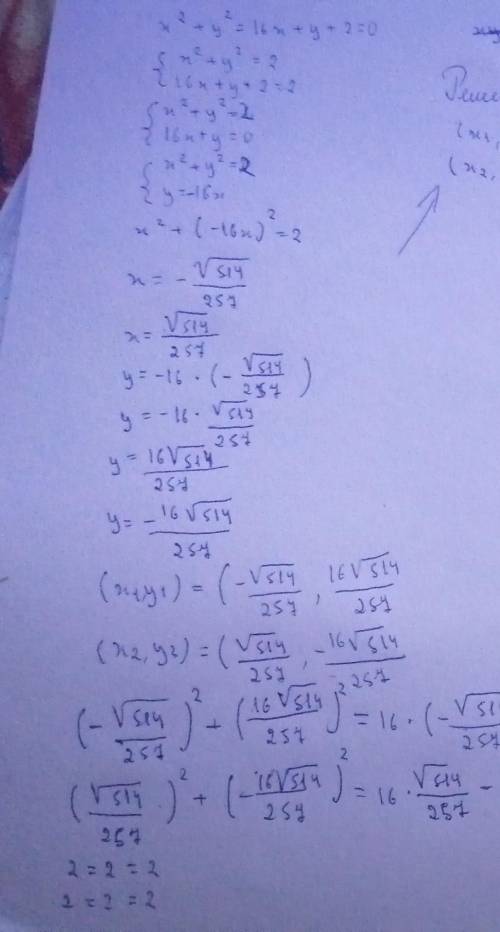 x² + y² = 16x + y + 2 = 0
{ x² + y² = 2
{ 16x + y + 2 = 2
{ x² + y² = 2
{ 16x + y = 0
{ x² + y² = 2
{ y = -16x
x² + (-16x)² = 2
x = - √514 / 257
x = √514 / 257
y = -16 · (- √514 / 257)
y = -16 · √514 / 257
y = 16√514 / 257
y = - 16√514 / 257
(x1, y1) = (- √514 / 257 , 16√514 / 257
(x2, y2) = ( √514 / 257 , - 16√514 / 257
(- √514 / 257)² + (16√514 / 257)² = 16 · (- √51 / 257
(√514 / 257)² + (- 16√514 / 257)² = 16 · √514 / 257 -
2 = 2 = 2
2 = 2 = 2
Реше
(x1,
(x2,